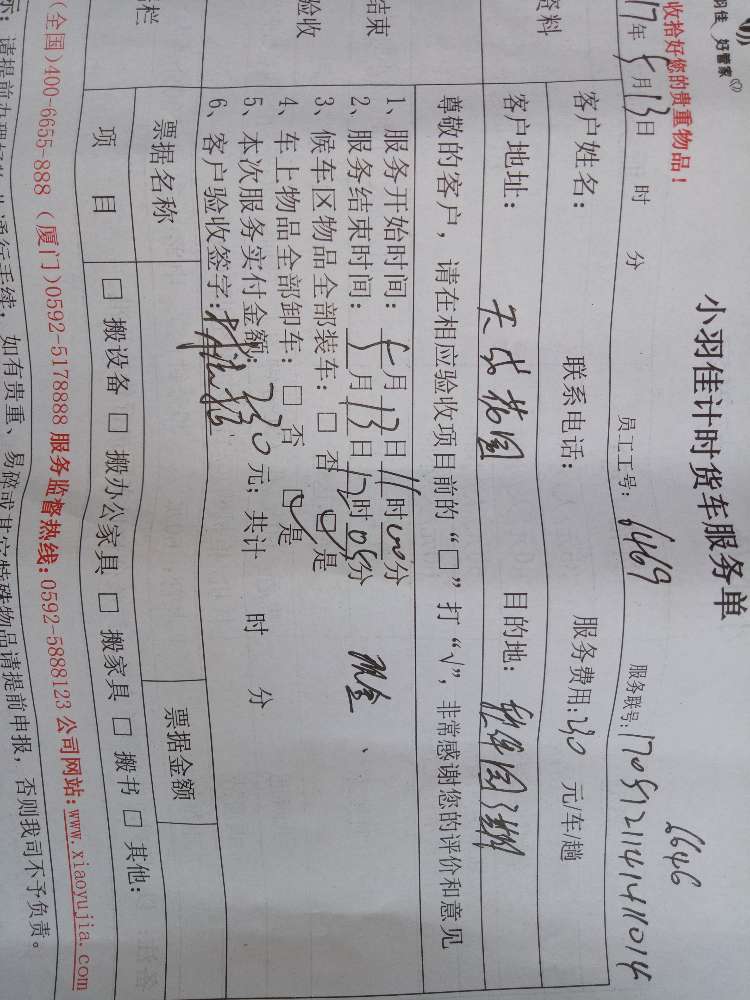 好管家
收拾好您的贵重物品！
小羽佳计时货车服务单
6646
17年5月13日 时 分 员工工号：6469 服务联号：
客户姓名： 联系电话： 服务费用：230 元/车/趟
资料
客户地址：天成花园 目的地：
尊敬的客户，请在相应验收项目前的“□”打“√”，非常感谢您的评价和意见
结束
验收
1、服务开始时间：5月13日11时00分
2、服务结束时间：5月13日12时05分 现金
3、候车区物品全部装车：□ 否 ☑ 是
4、车上物品全部卸车：□ 否 ☑ 是
5、本次服务实付金额：230元；共计 时 分
6、客户验收签字：
栏
票据名称 票据金额
项目 □ 搬设备 □ 搬办公家具 □ 搬家具 □ 搬书 □ 其他：
(全国)400-6655-888 (厦门)0592-5178888 服务监督热线：0592-5888123 公司网站：www.xiaoyujia.com
如有贵重、易碎或其它特殊物品请提前申报，否则我司不予负责。